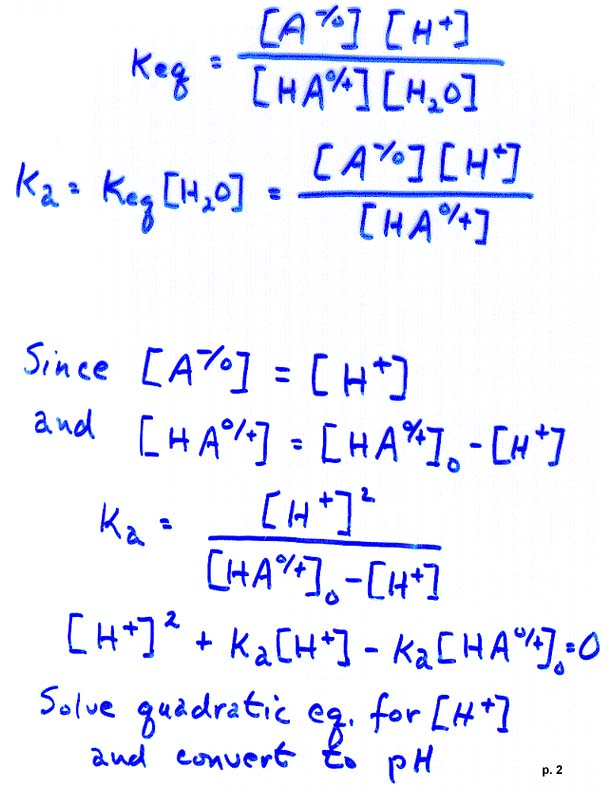 Keq = [A⁻/⁰] [H⁺] / [HA⁰/⁺][H₂O]
Ka = Keq[H₂O] = [A⁻/⁰][H⁺] / [HA⁰/⁺]
Since [A⁻/⁰] = [H⁺]
and [HA⁰/⁺] = [HA⁰/⁺]₀ - [H⁺]
Ka = [H⁺]² / [HA⁰/⁺]₀ - [H⁺]
[H⁺]² + Ka[H⁺] - Ka[HA⁰/⁺]₀ = 0
Solve quadratic eq. for [H⁺]
and convert to pH
p. 2